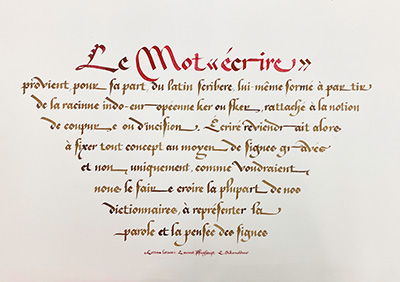 Le Mot «écrire»
provient, pour sa part, du latin scribere, lui-même formé à partir
de la racinne indo-européenne ker ou sker, rattaché à la notion
de coupure ou d'incision. Écrire reviendrait alors
à fixer tout concept au moyen de signes gravés
et non, uniquement, comme voudraient,
nous le faire croire la plupart de nos
dictionnaires, à représenter la
parole et la pensée des signes